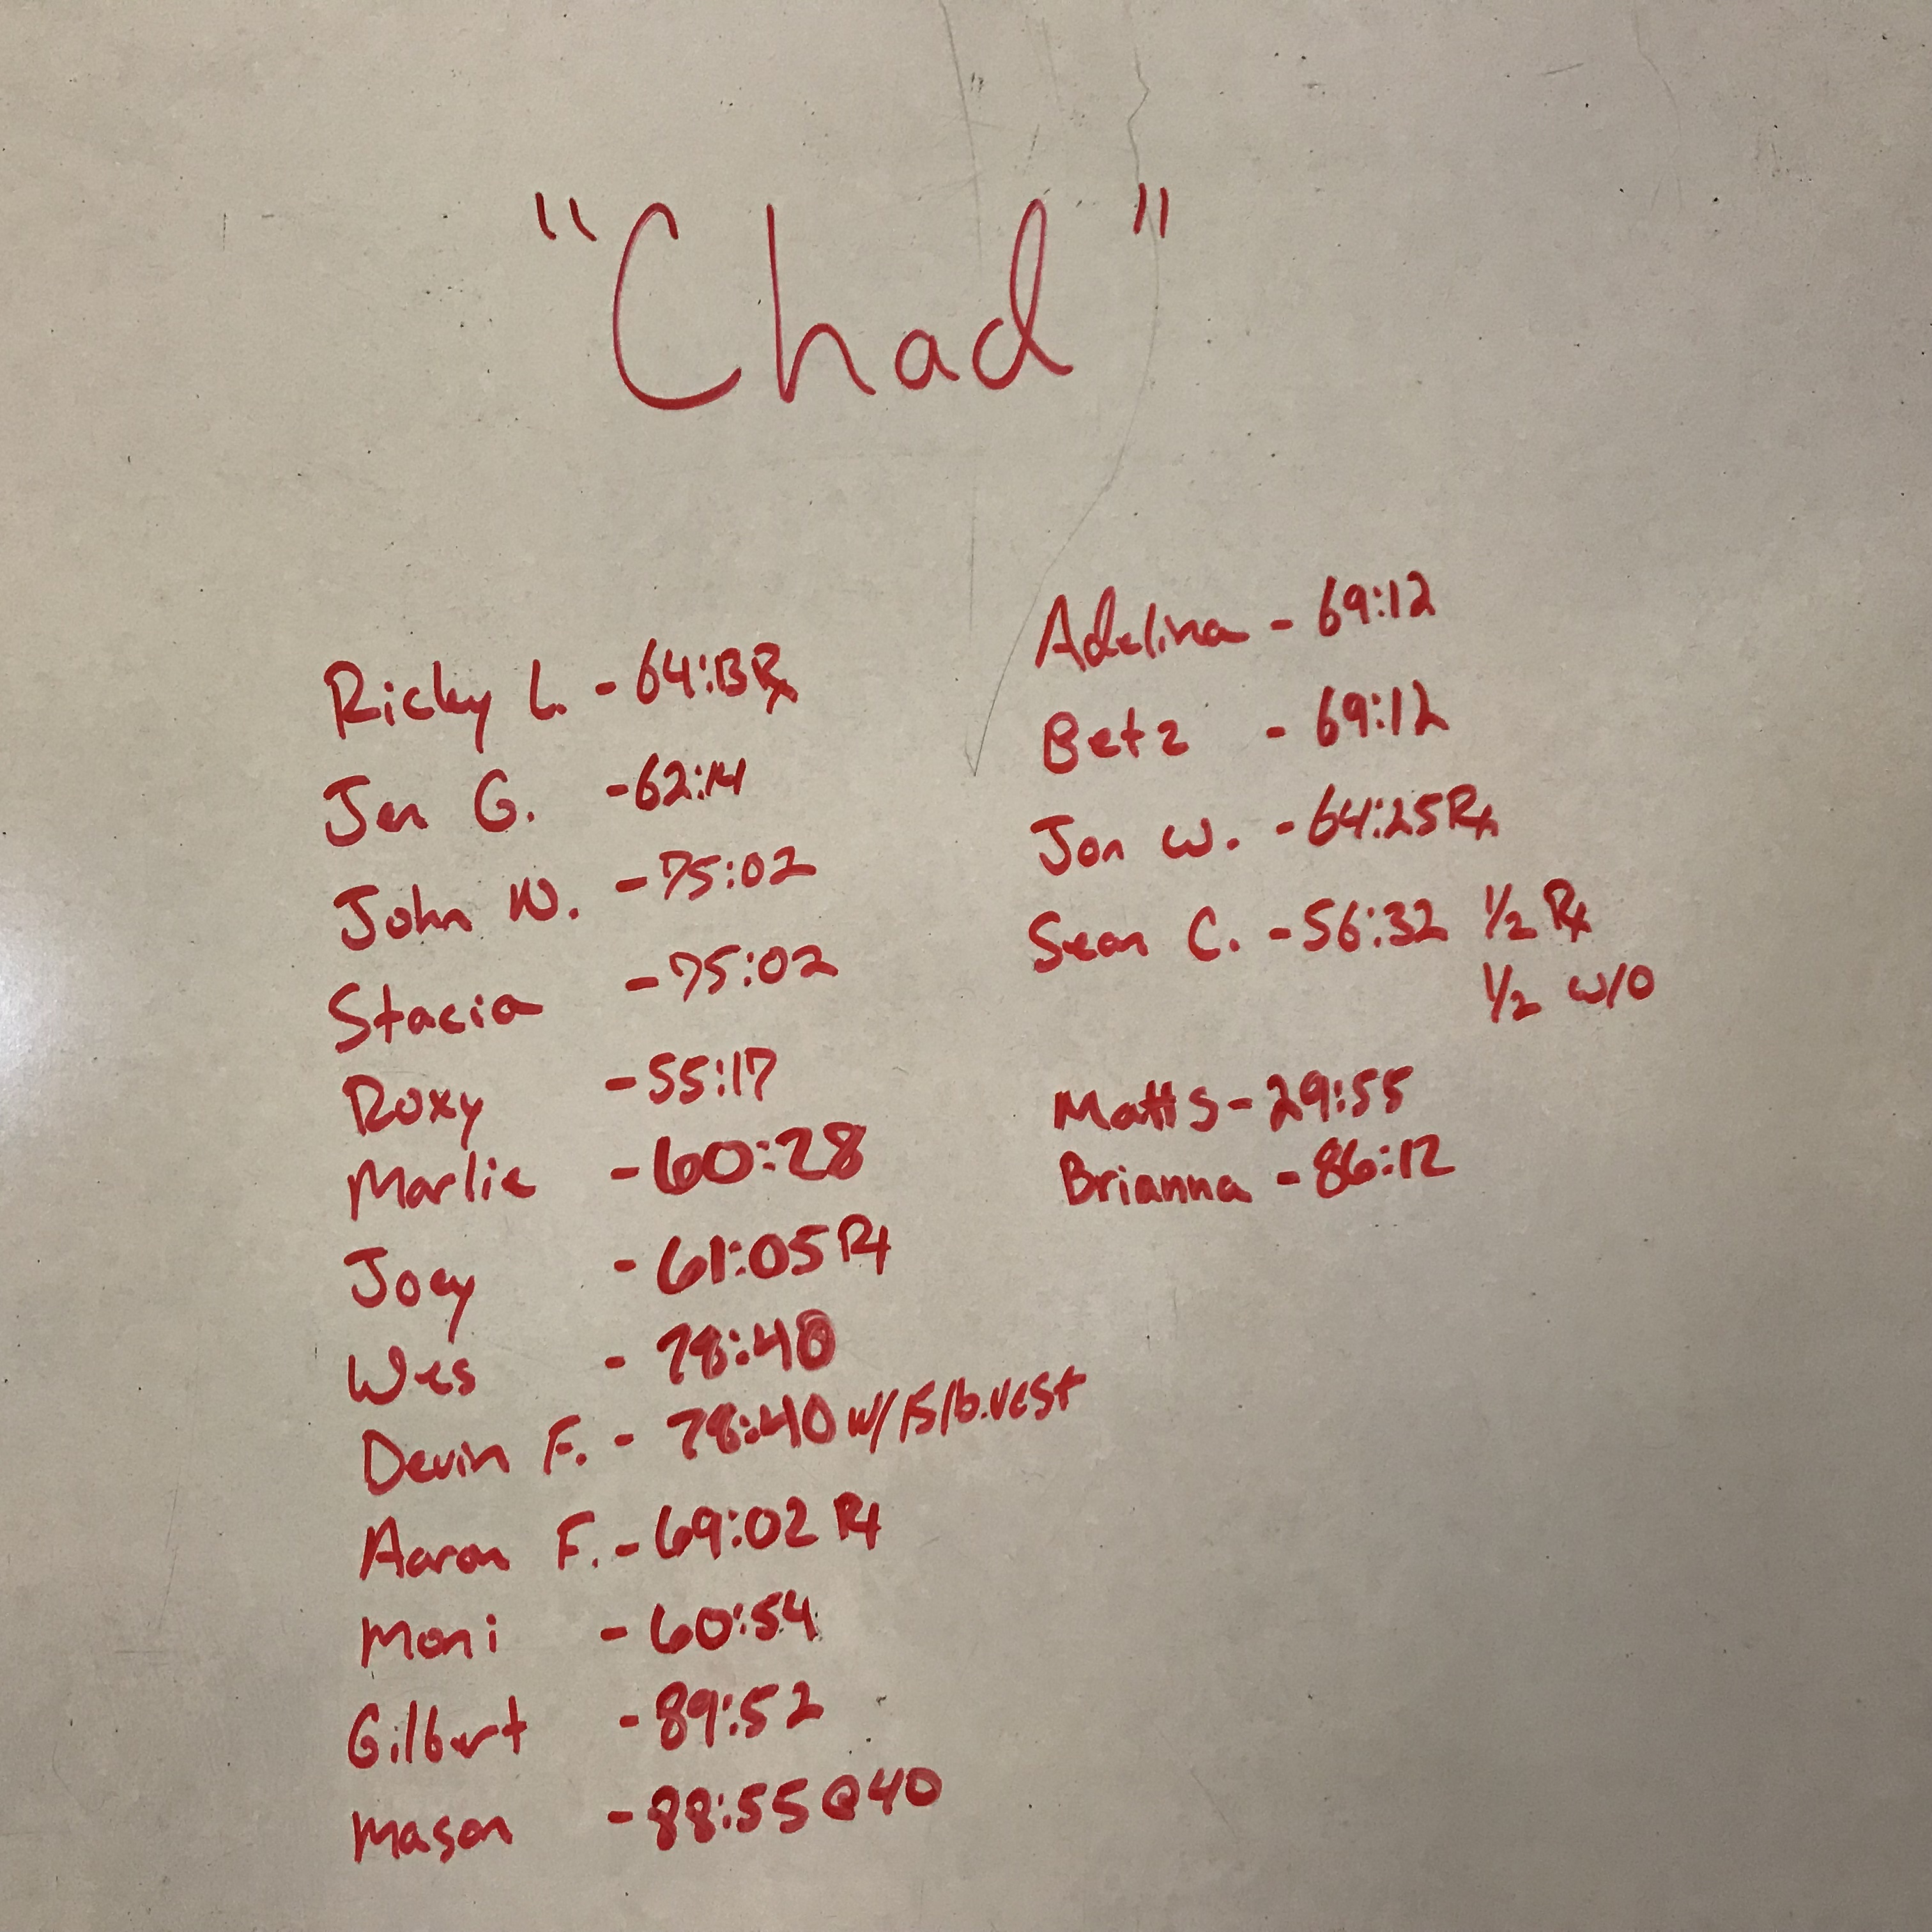 "Chad"
Ricky L. - 64:13 Rx
Jen G. - 62:14
John W. - 75:02
Stacia - 75:02
Roxy - 55:17
Marlie - 60:28
Joey - 61:05 Rx
Wes - 78:40
Devin F. - 78:40 w/ 15lb.vest
Aaron F. - 69:02 Rx
Moni - 60:54
Gilbert - 89:52
Mason - 88:55 @40
Adelina - 69:12
Betz - 69:12
Jon W. - 64:25 Rx
Sean C. - 56:32 1/2 Rx
1/2 w/o
Matt S - 29:55
Brianna - 86:12